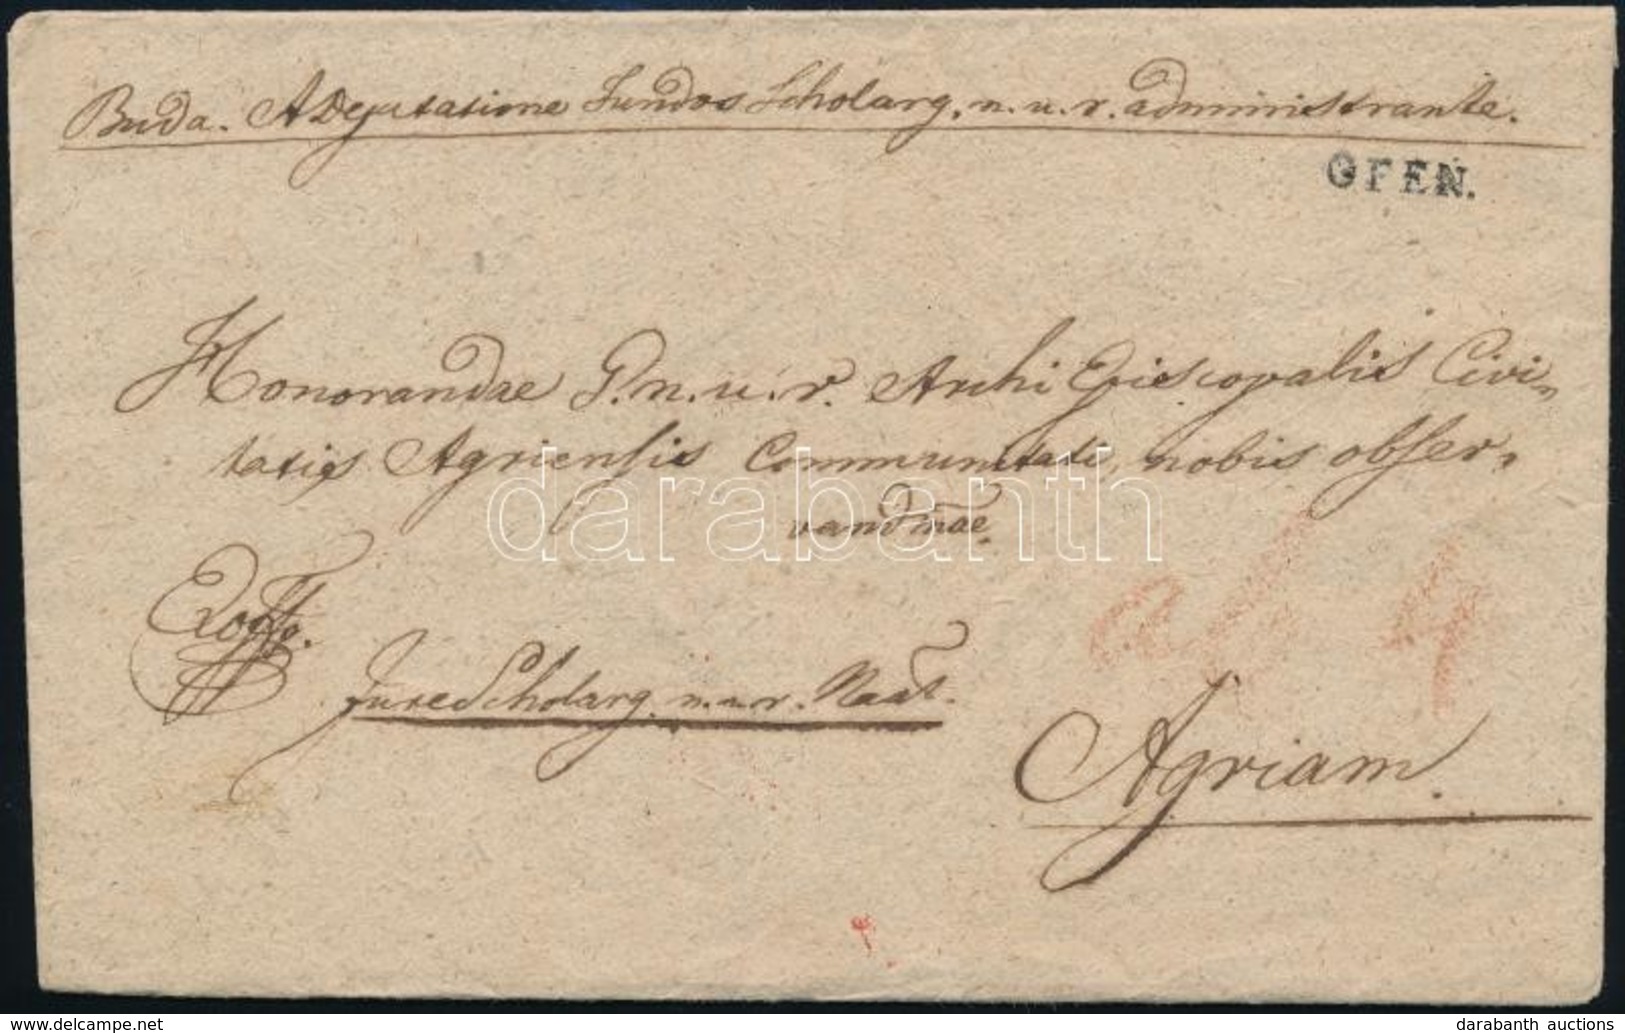 Buda. A Deputatione Fundos Scholarg. n. u. r. administrante.
OFEN.
Honorandae G. n. u. r. Archi Episcopalis Civi-
tatis Agriensis Communitati, nobis obser-
vandmae.
Exoffo.
Fune Scholarg. n. u. r. Naat.
Agriam.
darabanth
darabanth auctions
www.delcampe.net